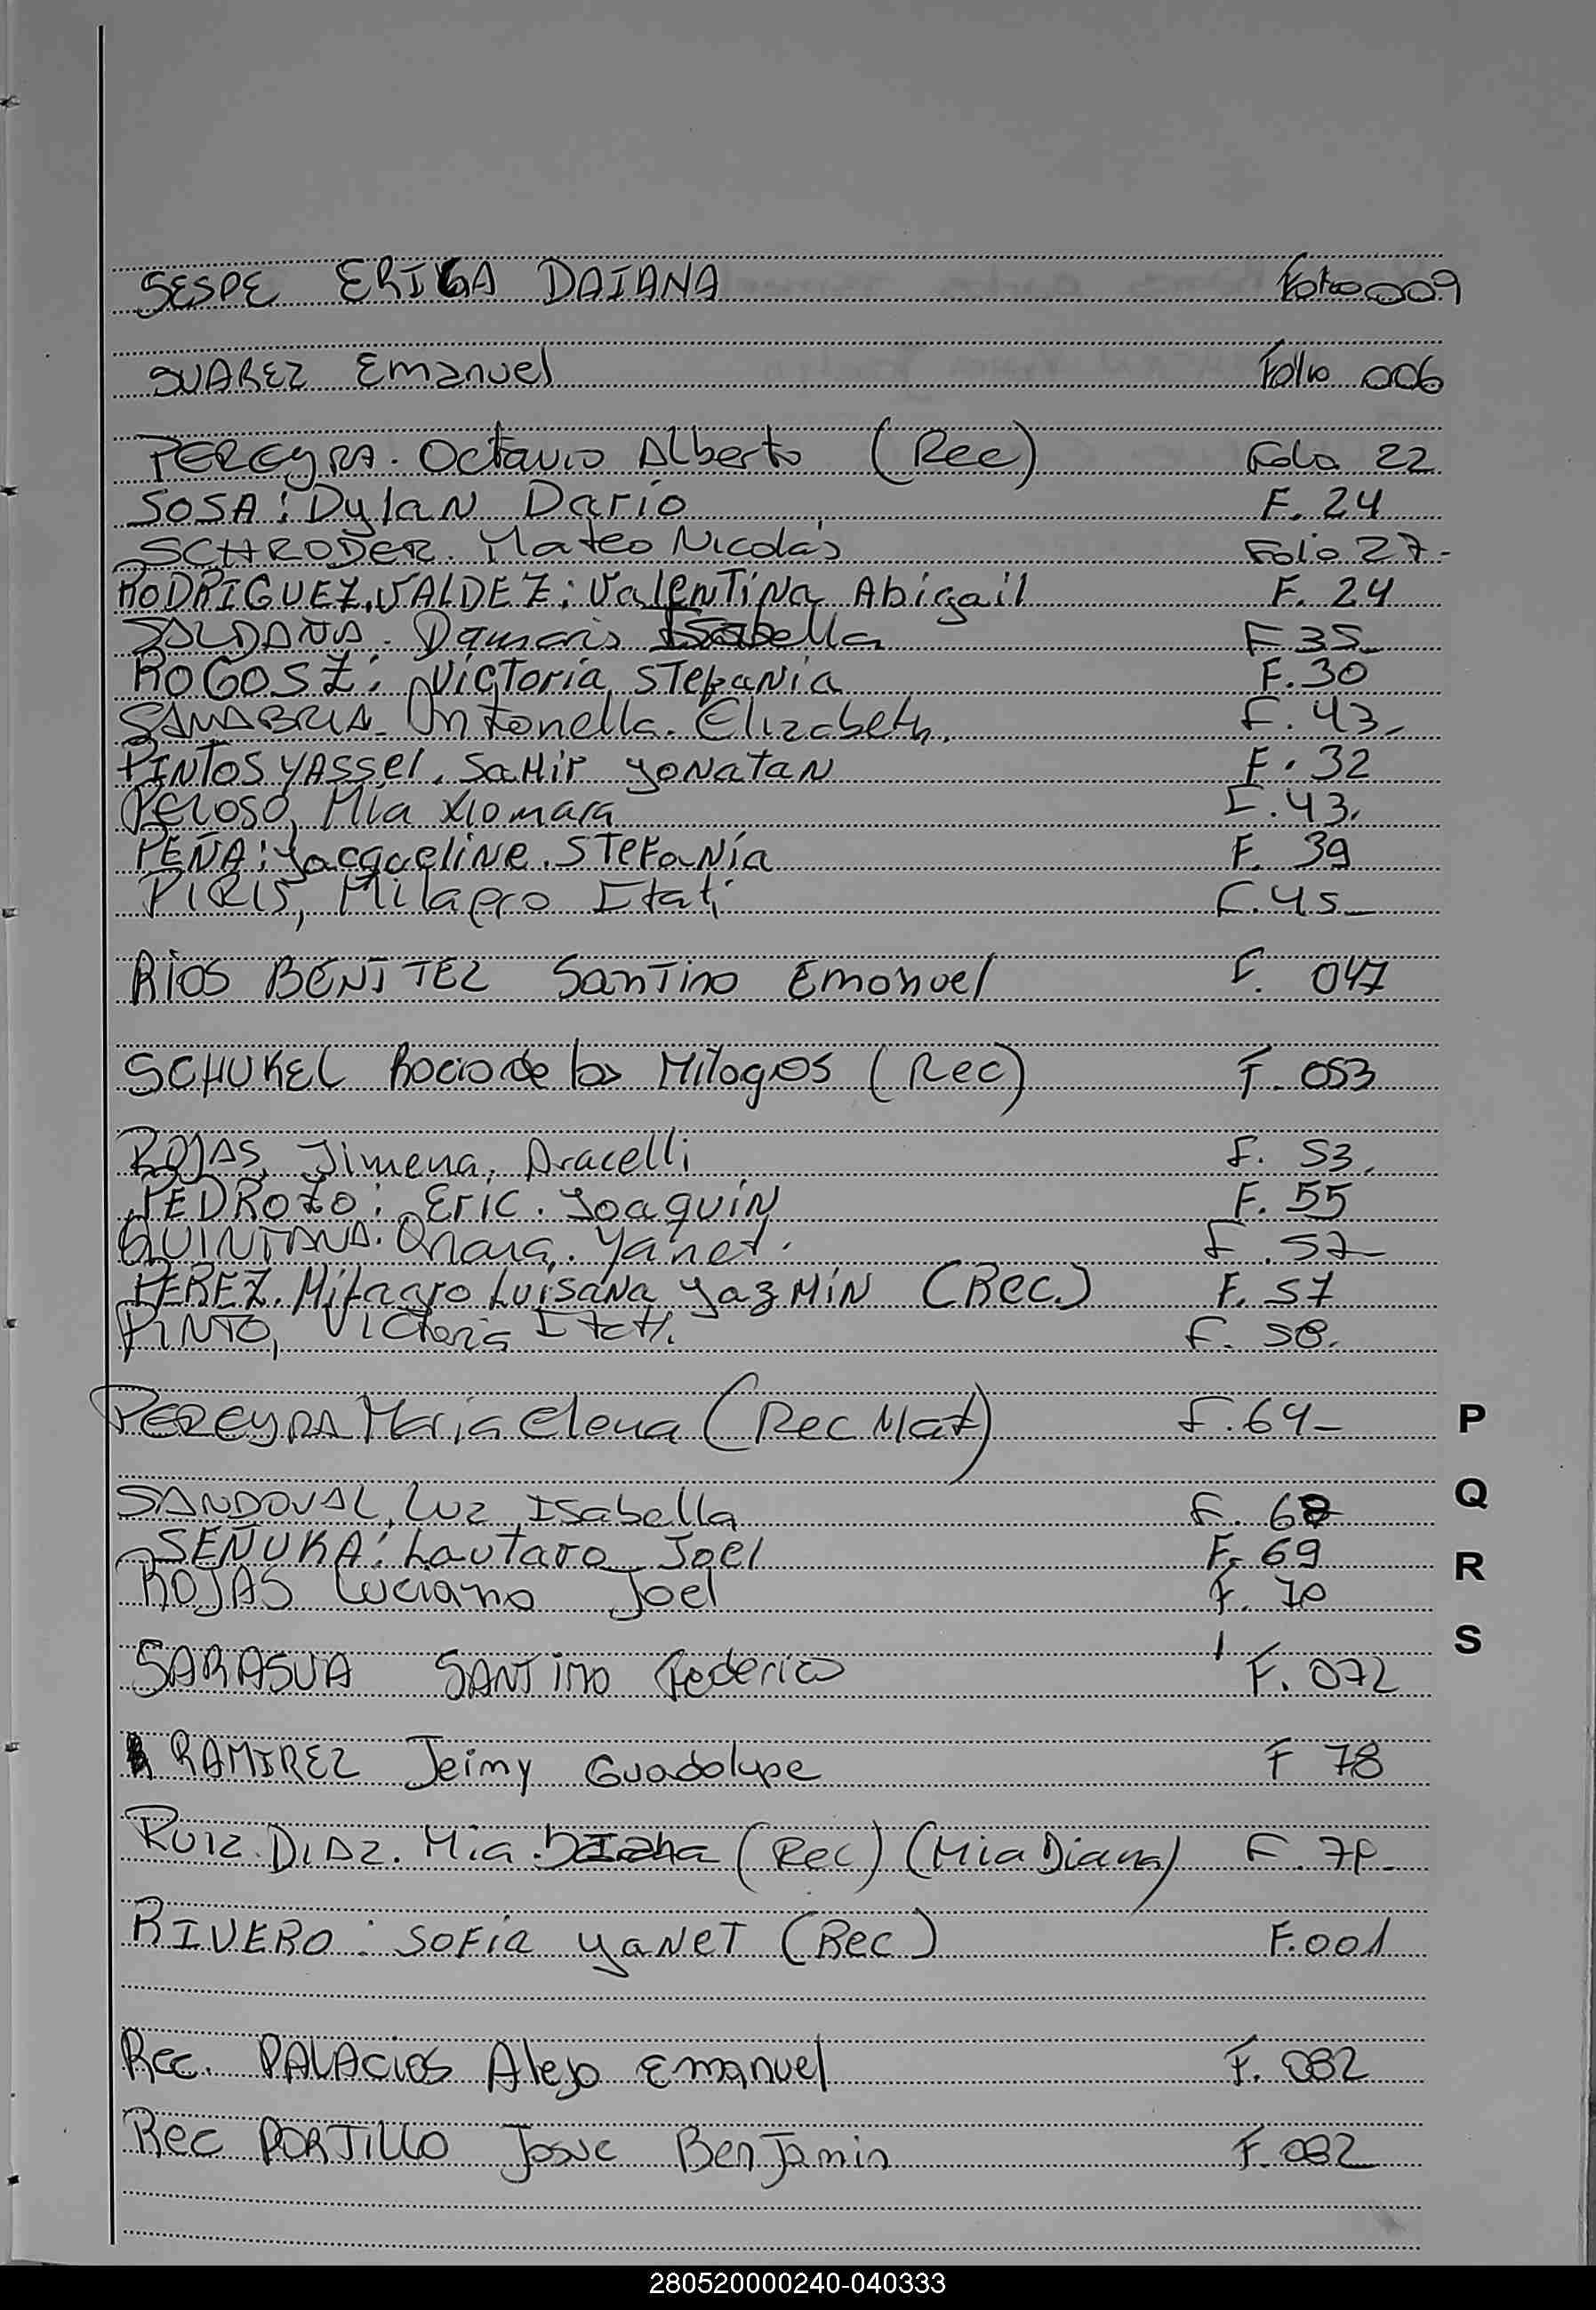 SESPE ERICA DAIANA Folio 009
SUAREZ Emanuel Folio 006
PEREYRA. Octavio Alberto (Rec) Folio 22
SOSA: Dylan Dario F. 24
SCHRODER. Mateo Nicolás Folio 27-
RODRIGUEZ VALDEZ: Valentina Abigail F. 24
SALDAÑA. Damaris Isabella F 35_
ROGOSZ: Victoria Stefania F. 30
SANABRIA. Antonella. Elizabeth. F. 43_
PINTOS YASSEl. SaMir YoNatan F. 32
Peloso, Mía Xiomara F. 43.
PEÑA: Jacqueline. Stefanía F. 39
PIRIS, Milagro Itatí F. 45_
RÍOS BENITEZ Santino Emanuel F. 047
SCHUKEL Rocio de los Milagros (Rec) F. 053
ROJAS, Jimena, Aracelli F. 53.
PEDROZO: Eric. Joaquín F. 55
QUINTANA. Onara. Yanet. F. 57_
PEREZ. Milagro Luisana Yazmín (Rec.) F. 57
PINTO, Victoria Itatí. F. 58.
PEREYRA María Elena (Rec Mat) F. 64_
P
SANDOVAL, Luz Isabella F. 68
Q
SEÑUKA: Lautaro Joel F. 69
R
ROJAS Luciano Joel F. 70
S
SARASUA SANTINO Federico F. 072
RAMIREZ Jeimy Guadalupe F 78
RUIZ. DIAZ. Mia. (Rec) (Mia Diana) F.
RIVERO: Sofía Yanet (Rec) F. 001
Rec. PALACIOS Alejo Emanuel F. 082
Rec PORTILLO Josue Benjamin F. 082
280520000240-040333